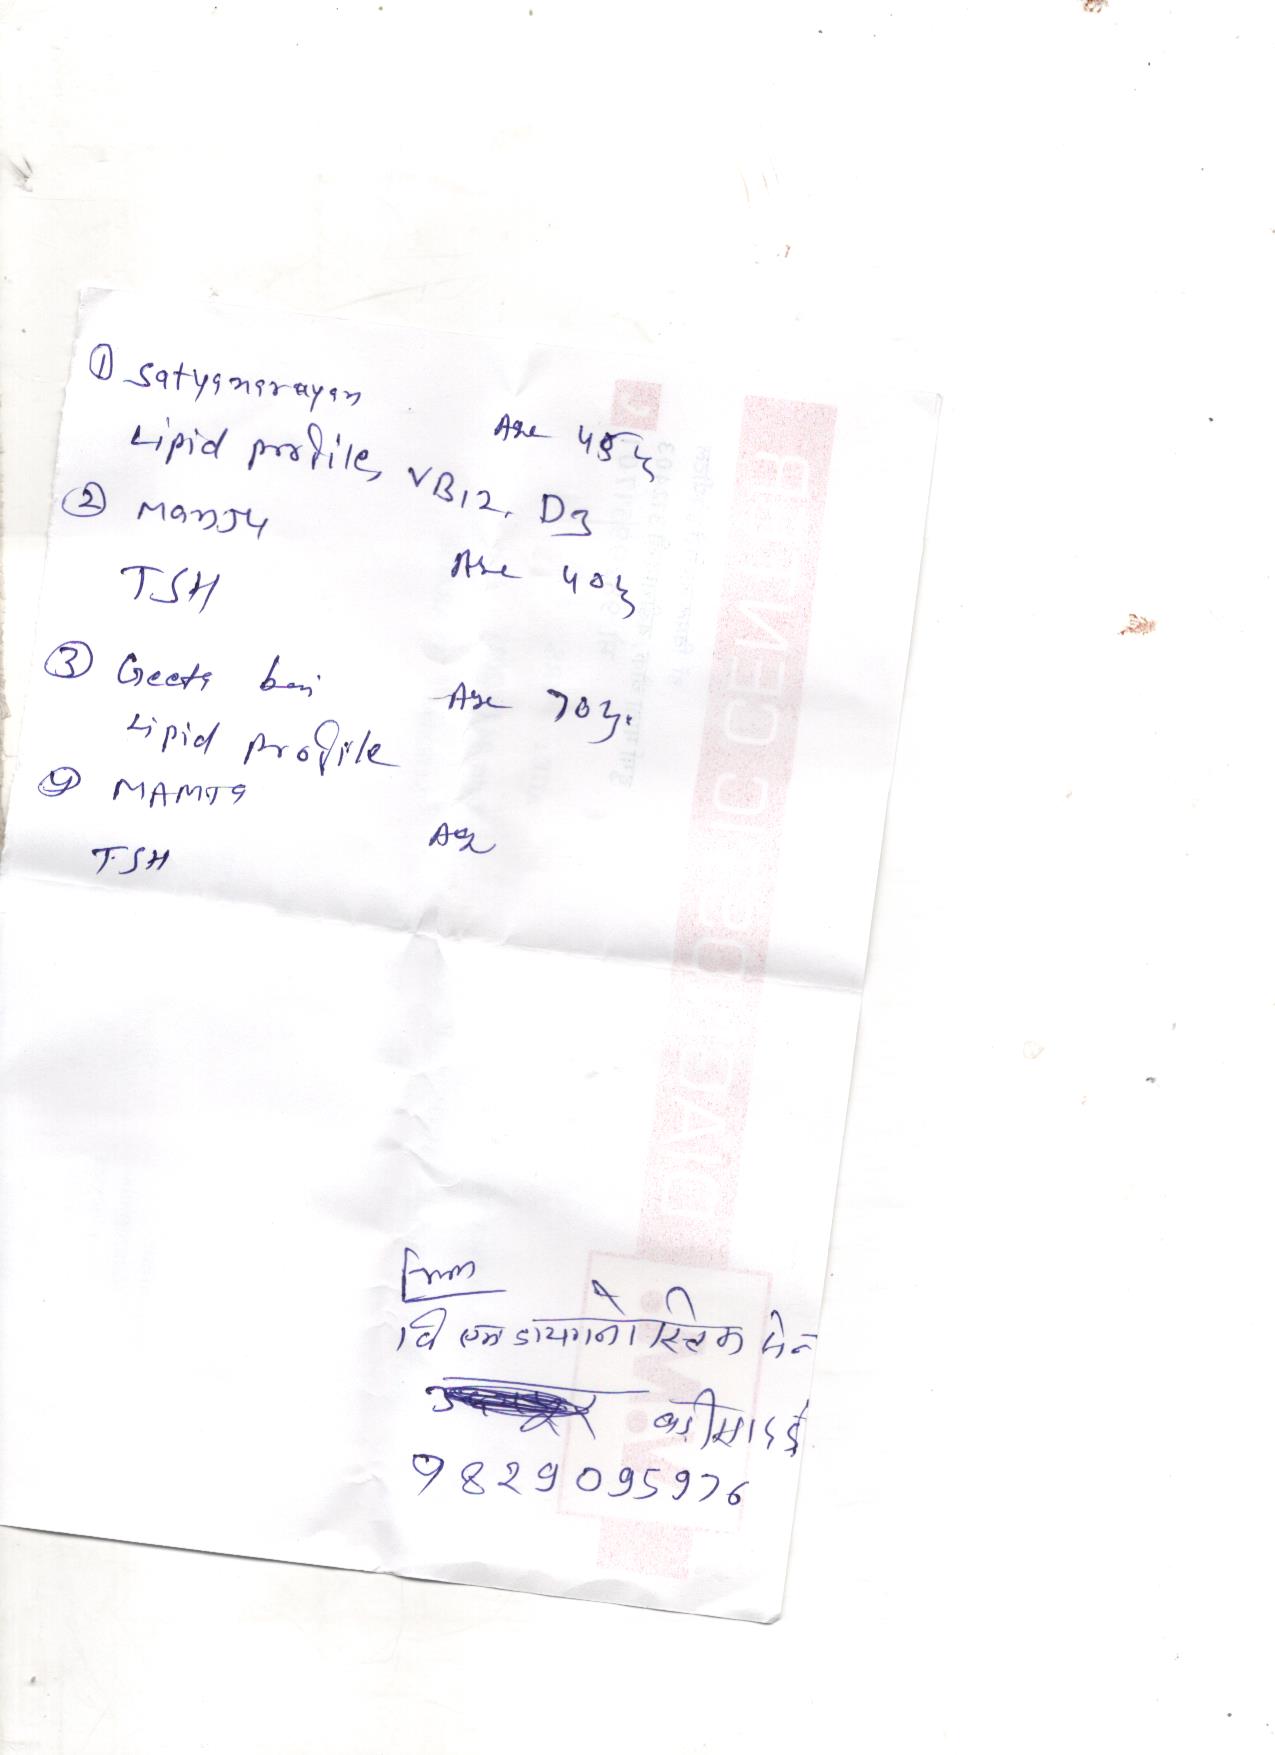 ① Satyanarayan Age 45y
Lipid profile, VB12, D3
② Manju Age 40y
TSH
③ Geeta bai Age 70y.
Lipid profile
④ MAMTA Age
TSH
From
वि एम डायग्नोस्टिक सेन
बड़ीसादड़ी
9829095976
DIAG OSTIC CENTR